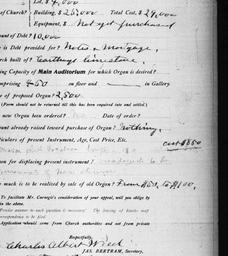 of Church? $4,000
Building, $25,000 Total Cost, $29,000
Equipment, $ Not yet purchased
ount of Debt? 10,000
is Debt provided for? Notes & Mortgage,
rch built of?
ing Capacity of Main Auditorium for which Organ is desired?
mprising 450 on floor and in Gallery
e of proposed Organ? 2,500
(Form should not be returned till this has been inquired into and settled.)
new Organ been ordered? Date of order?
ount already raised toward purchase of Organ? Nothing,
iculars of present Instrument, Age, Cost Price, Etc. Cost $850
on for displacing present instrument?
much is to be realized by sale of old Organ? From $50, to $100,
To facilitate Mr. Carnegie's consideration of your appeal, will you oblige by
in the above.
Precise answer to each question is necessary.
correspondence to be filed.
Application should come from Church authorities and not from private
Respectfully,
Charles Albert
JAS. BERTRAM, Secretary,